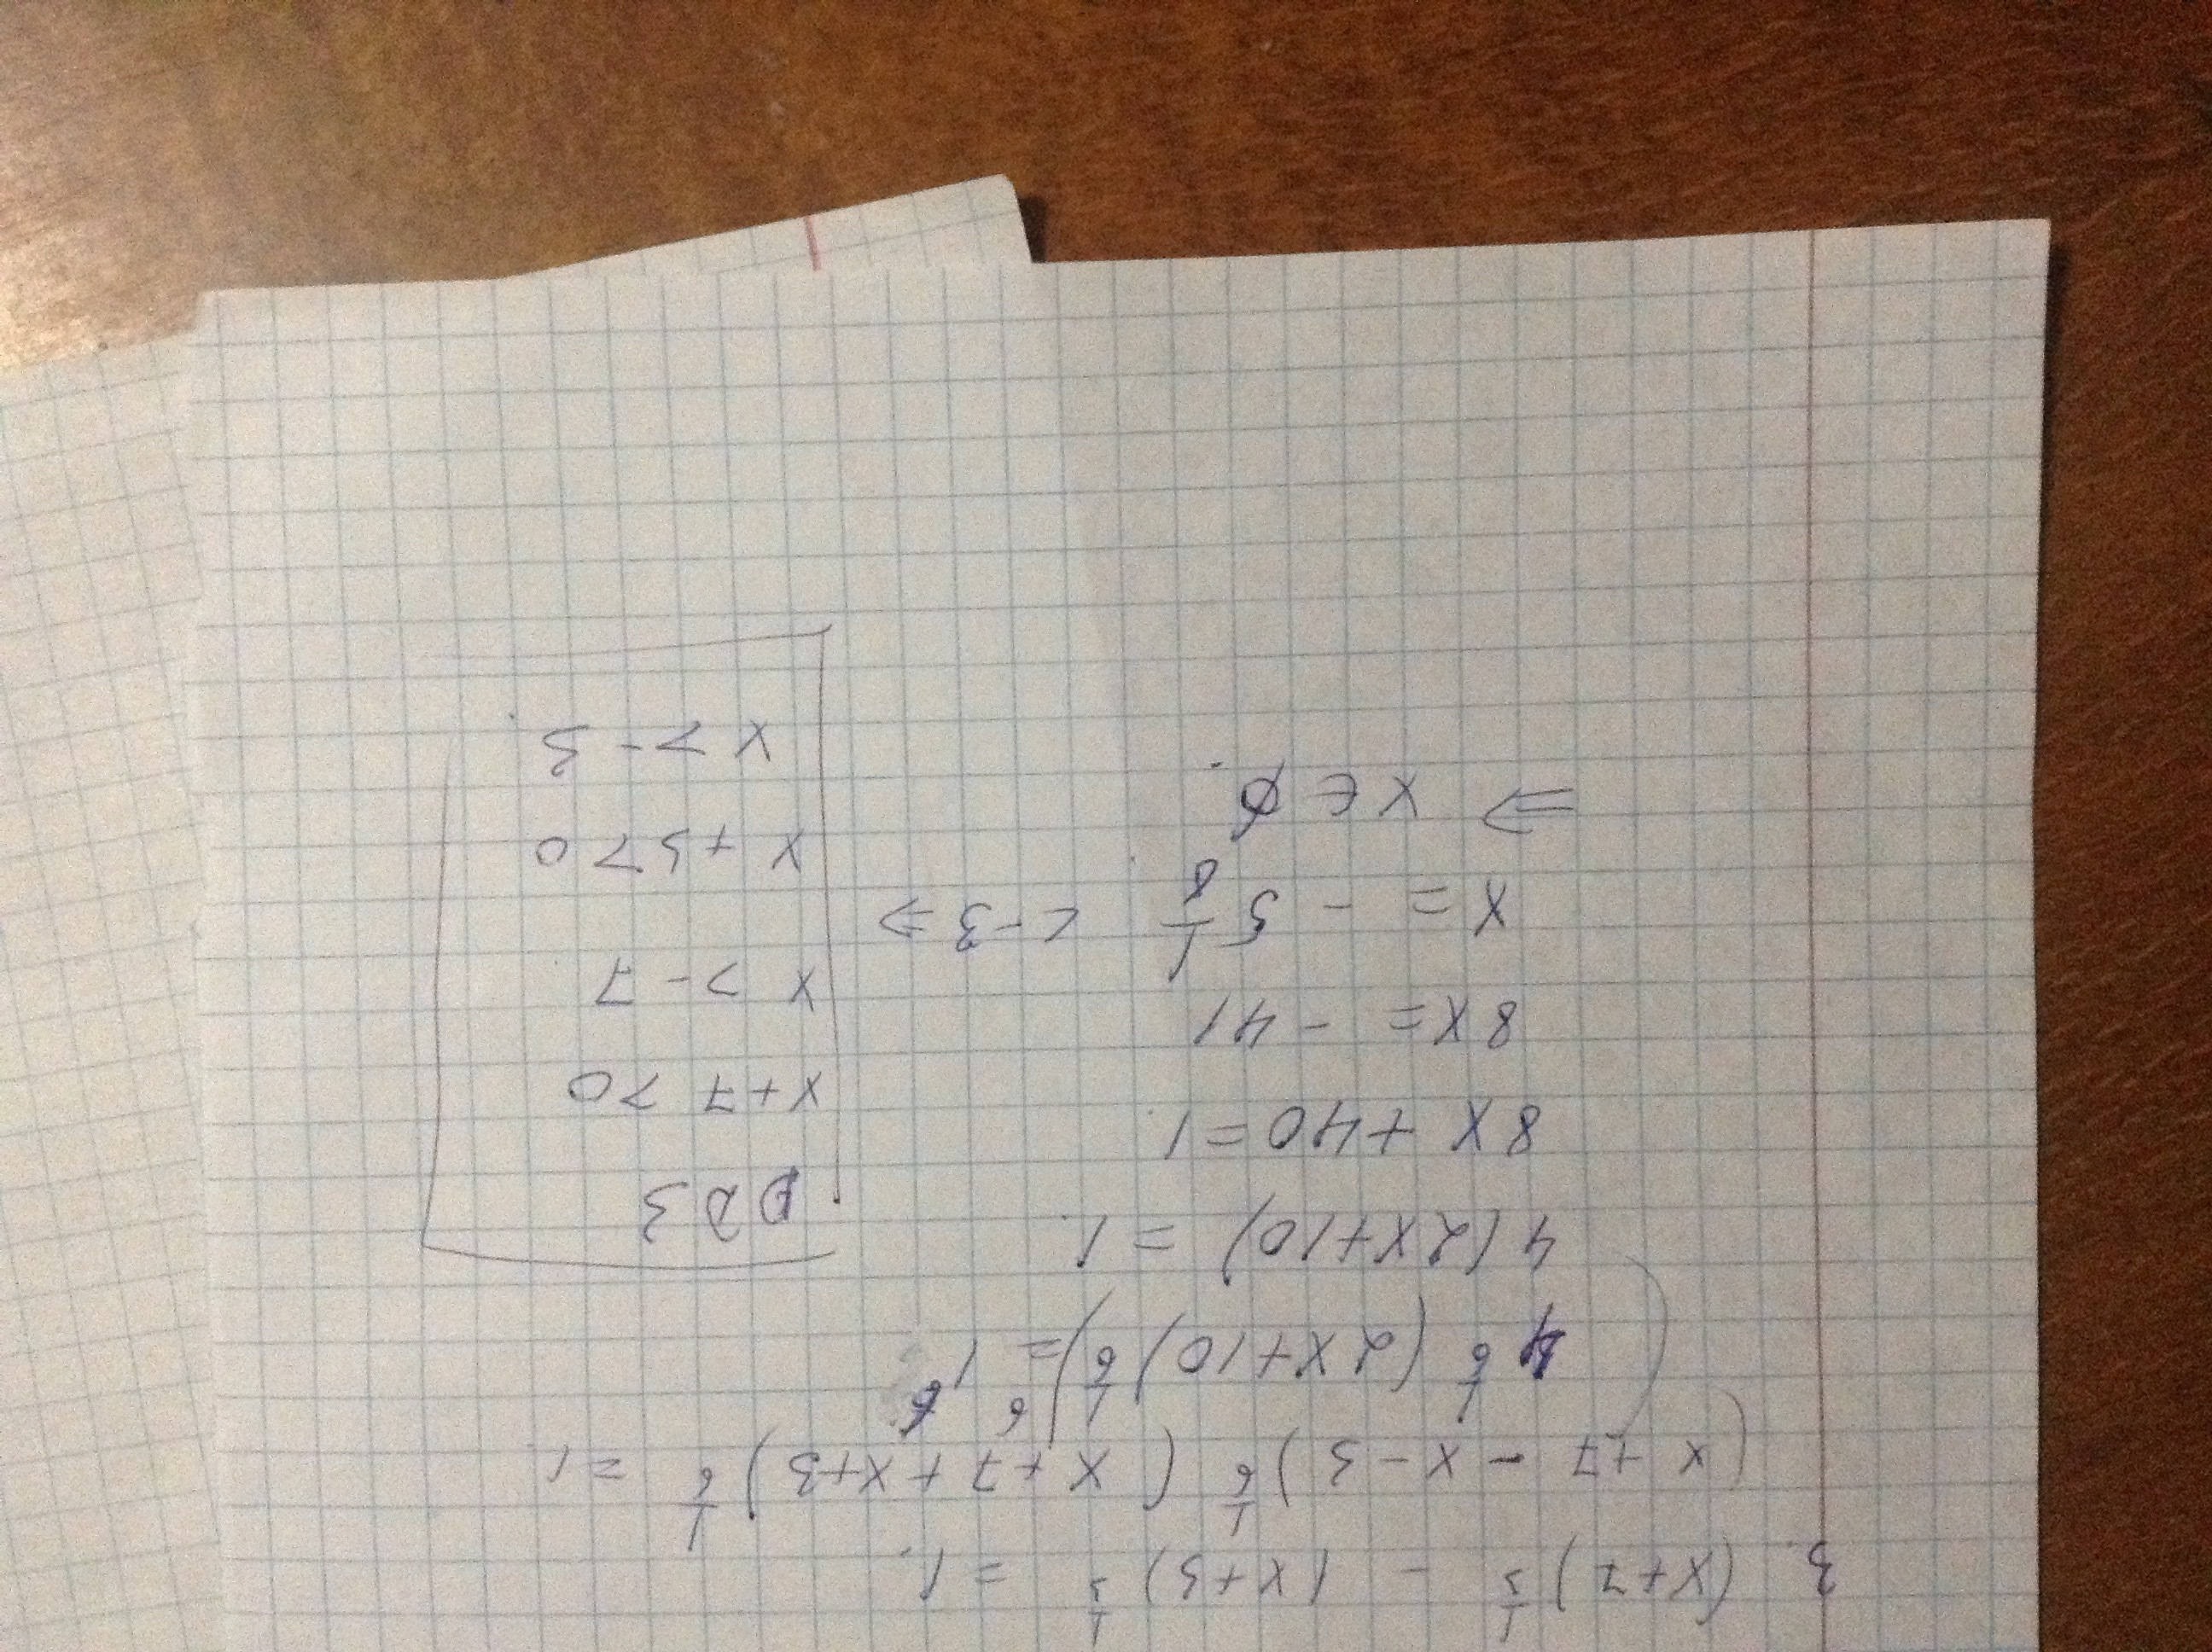 3. (x+7)^{1/3} - (x+3)^{1/3} = 1.
(x+7-x-3)^{1/6} (x+7+x+3)^{1/6} = 1.
(4^{1/6} (2x+10)^{1/6})^6 = 1^6
4(2x+10) = 1.
8x + 40 = 1.
8x = - 41
x = - 5 1/8 < -3 ⇒
⇒ x ∈ ∅.
ОДЗ
x+7 > 0
x > -7
x+3 > 0
x > -3.